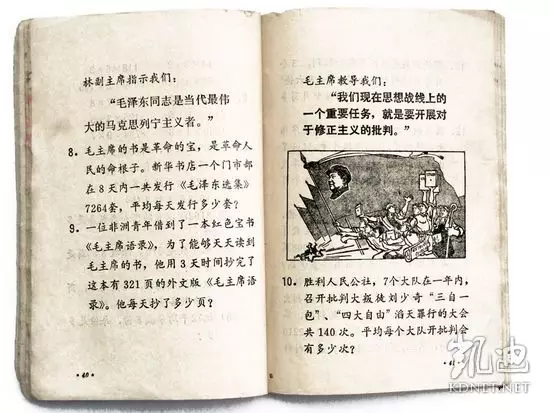 林副主席指示我们：
“毛泽东同志是当代最伟
大的马克思列宁主义者。”
8。毛主席的书是革命的宝，是革命人
民的命根子。新华书店一个门市部
在8天内一共发行《毛泽东选集》
7264套，平均每天发行多少套？
9。一位非洲青年借到了一本红色宝书
《毛主席语录》，为了能够天天读到
毛主席的书，他用3天时间抄完了
这本有321页的外文版《毛主席语
录》。他每天抄了多少页？
·40·
毛主席教导我们：
“我们现在思想战线上的
一个重要任务，就是要开展对
于修正主义的批判。”
10。胜利人民公社，7个大队在一年内，
召开批判大叛徒刘少奇“三自一
包”、“四大自由”滔天罪行的大会
共140次。平均每个大队开批判会
有多少次？
·41·
凯迪
KDNET.NET